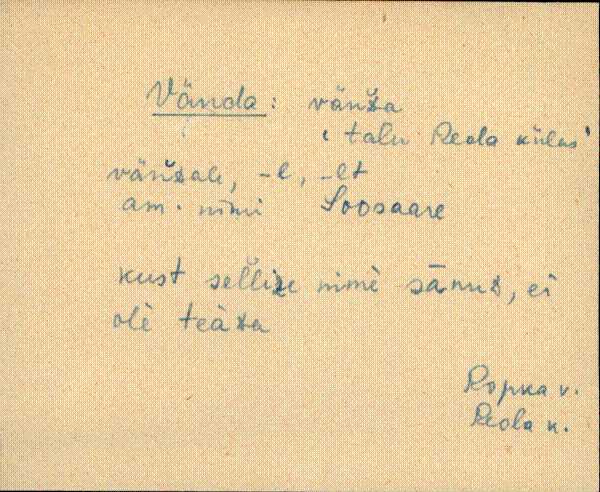 Vända: vänᴅa
‘talu Reola külas’
vänᴅalᴇ, -l, -lt
am. nimi Soosaare
kust sellize nimè sānuᴅ, ei
olè teäᴅa
Ropka v.
Reola k.